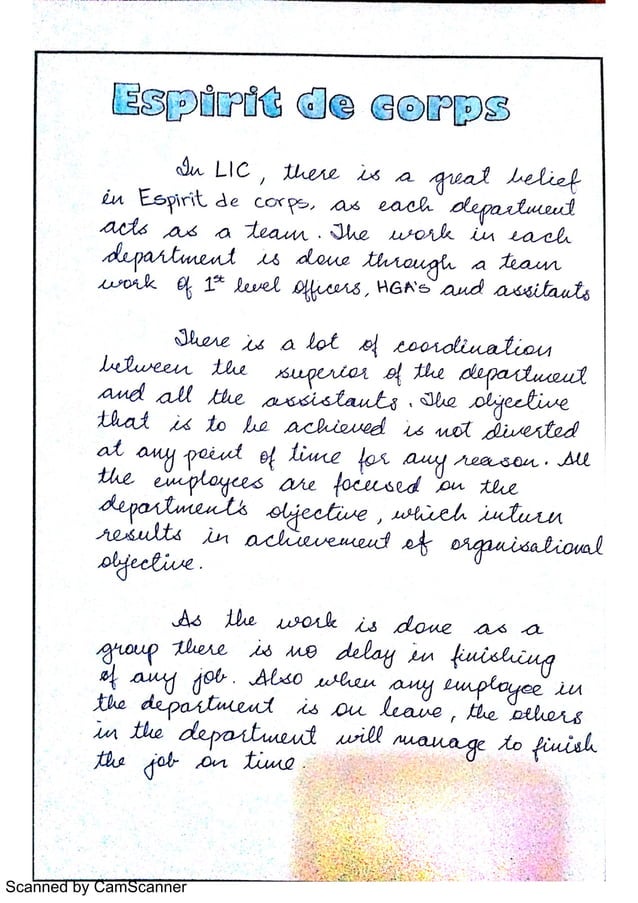 Espirit de corps
In LIC, there is a great belief
in Espirit de corps, as each department
acts as a team. The work in each
department is done through a team
work of 1st level officers, HGA's and assitants
There is a lot of coordination
between the superior of the department
and all the assistants. The objective
that is to be achieved is not diverted
at any point of time for any reason. All
the employees are focused on the
department's objective, which inturn
results in achievement of organisational
objective.
As the work is done as a
group there is no delay in finishing
of any job. Also when any employee in
the department is on leave, the others
in the department will manage to finish
the job on time.
Scanned by CamScanner